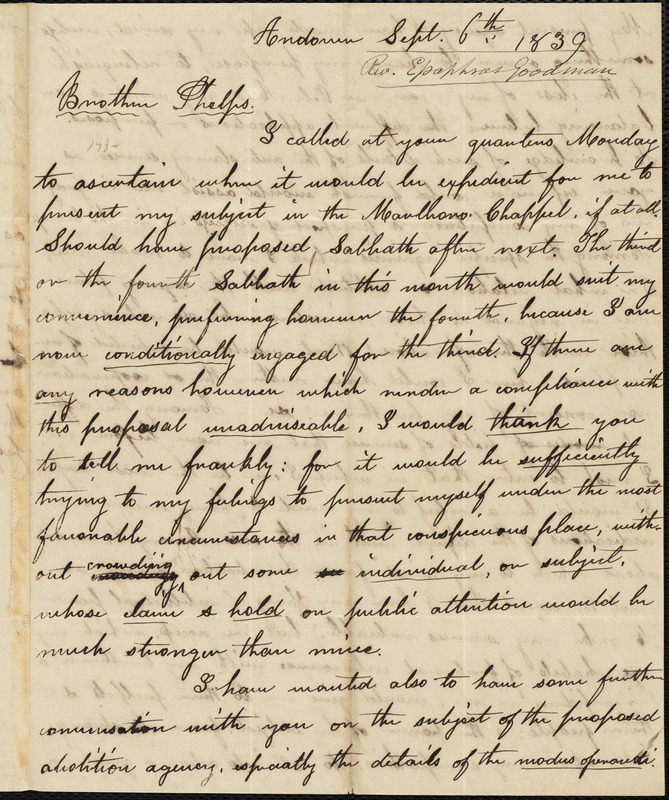 Andover Sept. 6th 1839
Rev. Epaphras Goodman
Brother Phelps.
I called at your quarters Monday
to ascertain when it would be expedient for me to
present my subject in the Marlboro. Chappel, if at all.
Should have proposed Sabbath after next. The third
or the fourth Sabbath in this month would suit my
convenience, preferring however the fourth, because I am
now conditionally engaged for the third. If there are
any reasons however which render a compliance with
this proposal unadviseable, I would thank you
to tell me frankly: for it would be sufficiently
trying to my feelings to present myself under the most
favorable circumstances in that conspicuous place, with-
out crowding out some individual, or subject,
whose claim & hold on public attention would be
much stronger than mine.
I have wanted also to have some further
conversation with you on the subject of the proposed
abolition agency, especially the details of the modus operandi.